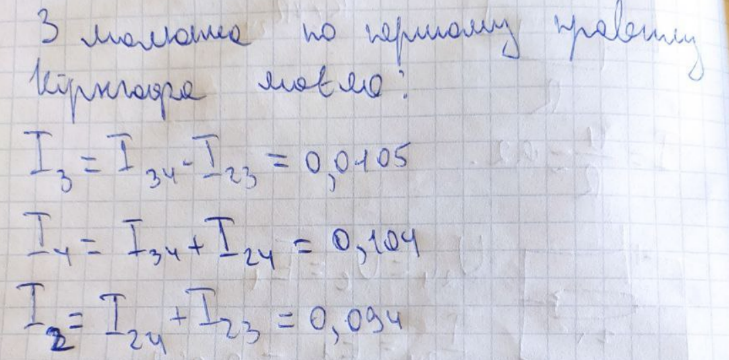 З малюнка по першому правилу
Кірхгофа маємо:
I₃ = I₃₄ - I₂₃ = 0,0105
I₄ = I₃₄ + I₂₄ = 0,104
I₂ = I₂₄ + I₂₃ = 0,094